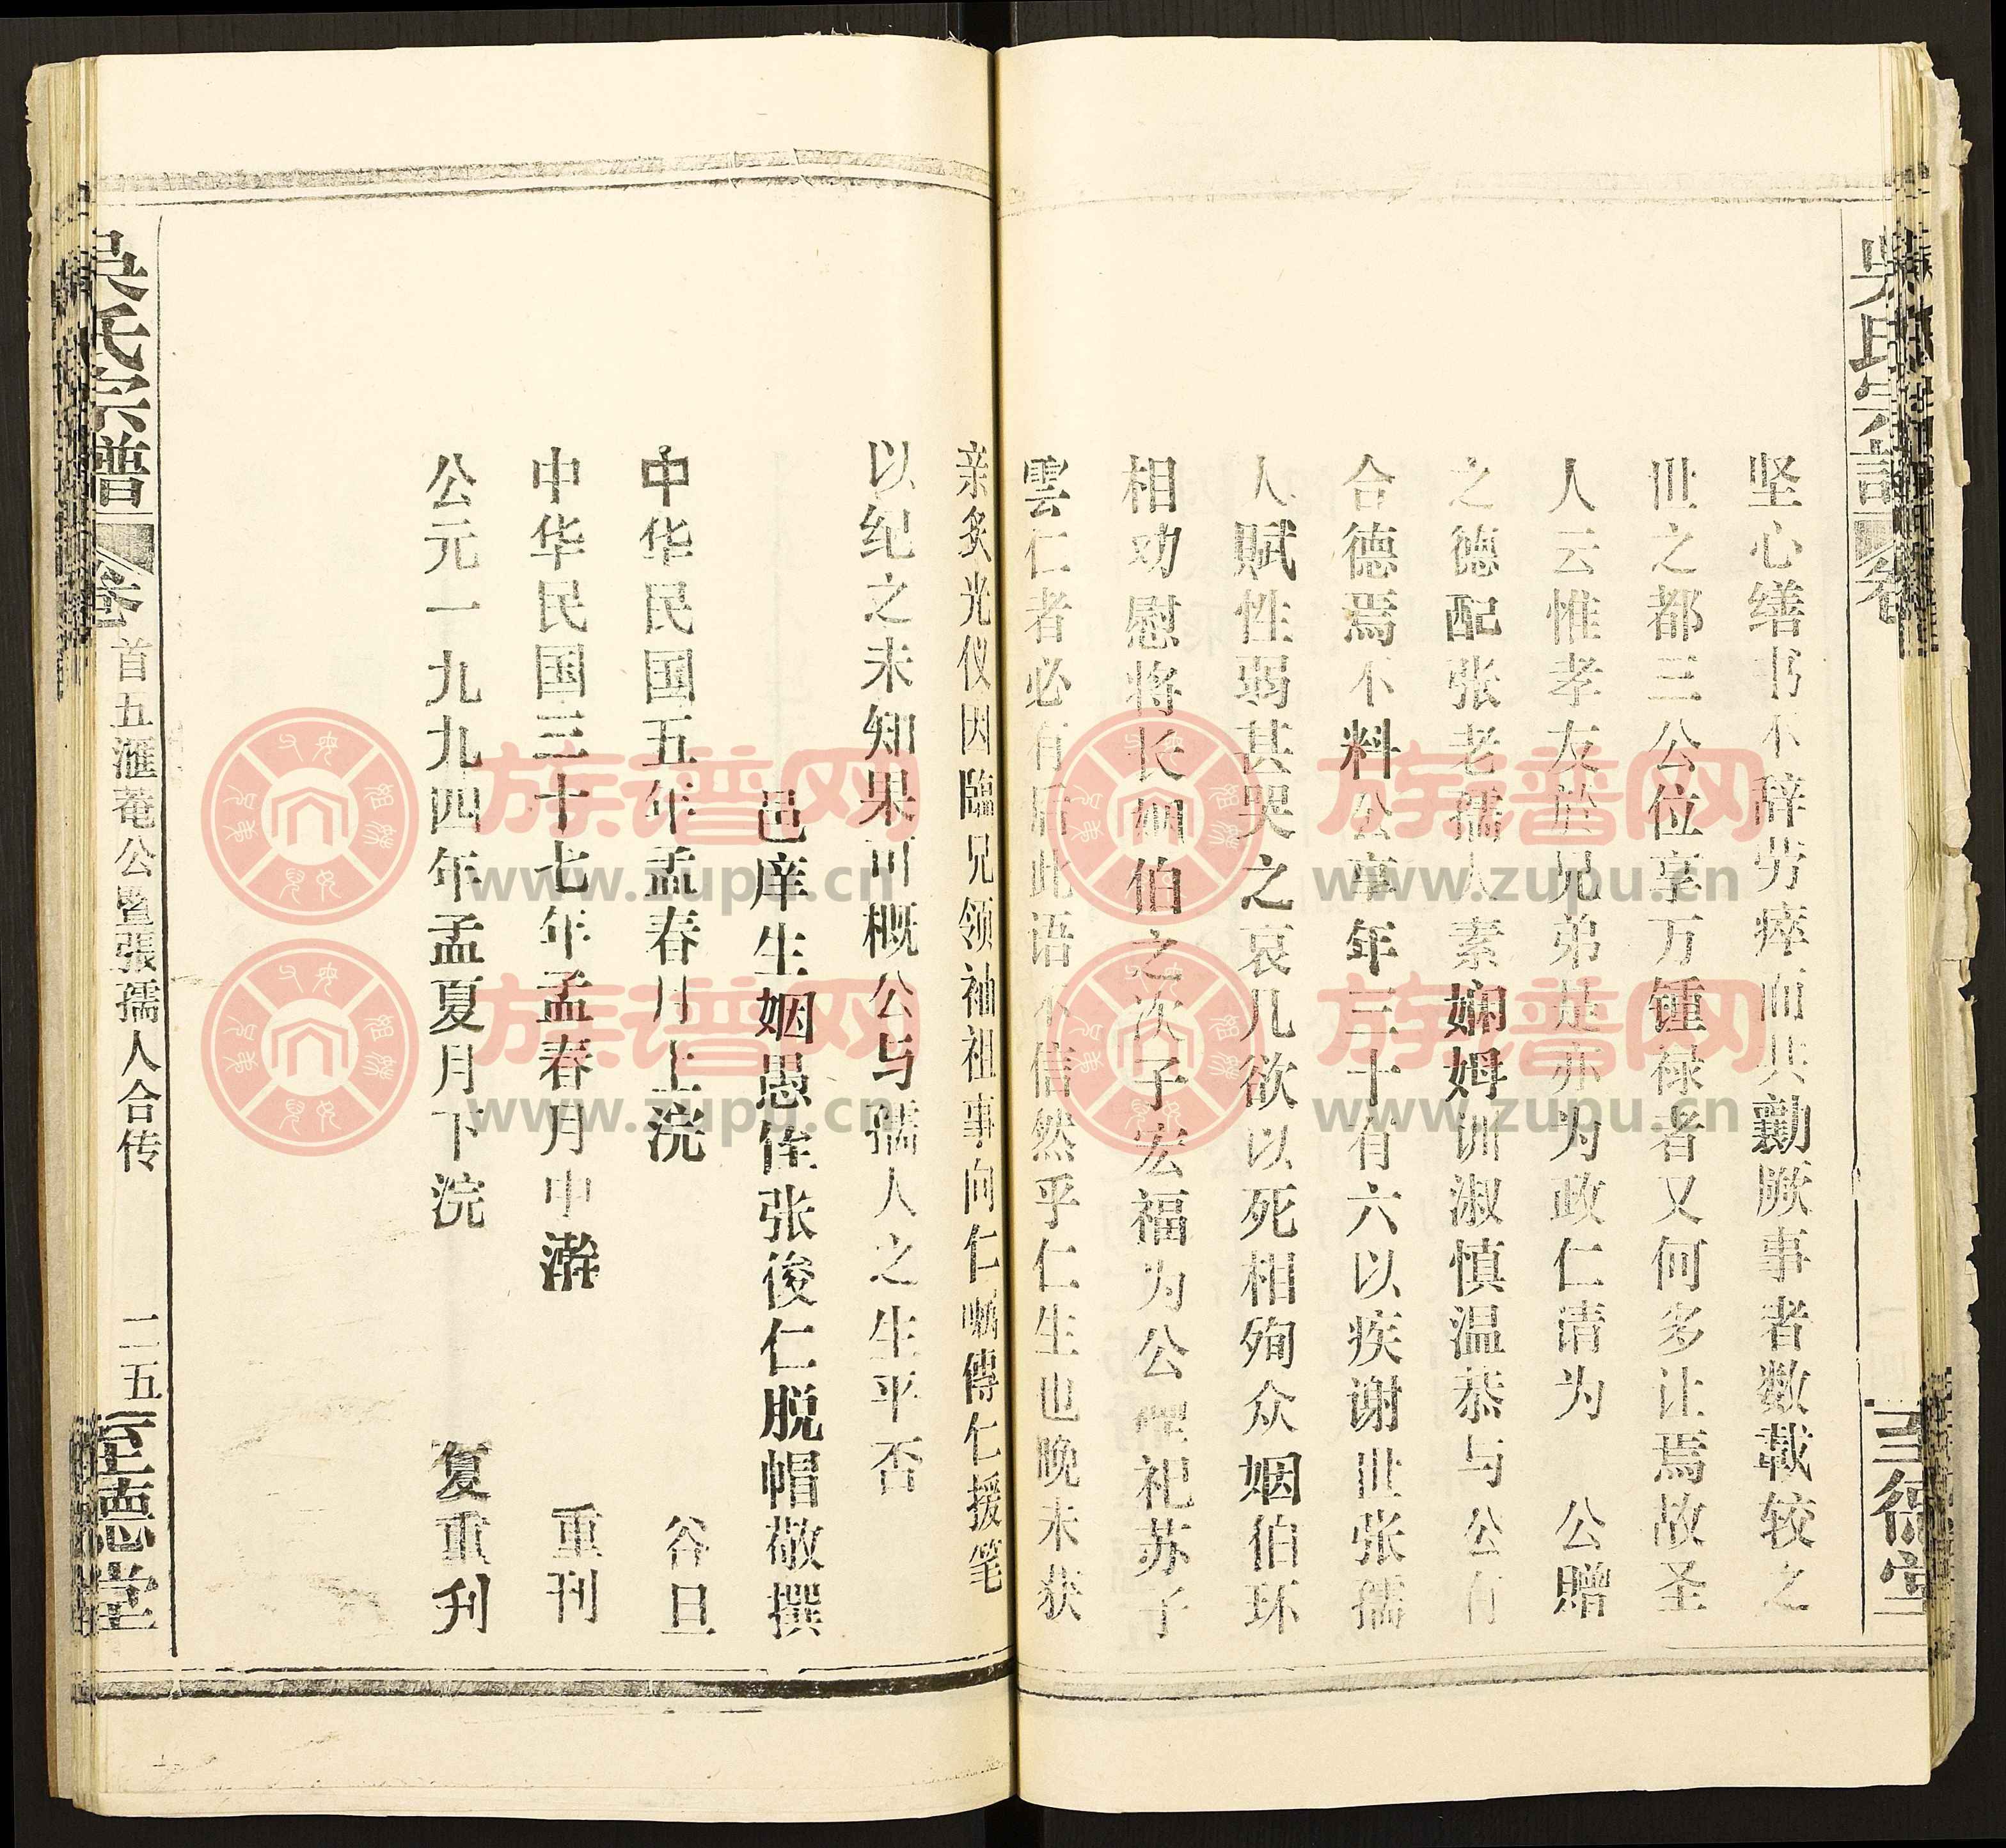 吴氏宗谱
坚心缮书不辞劳瘁而共勷厥事者数载较之
世之都三公位享万锺禄者又何多让焉故圣
人云惟孝友於兄弟是亦为政仁请为 公赠
之德配张老孺人素娴姆训淑慎温恭与公有
合德焉不料公享年三十有六以疾谢世张孺
人赋性弱甚哭之哀几欲以死相殉众姻伯环
相劝慰将长姻伯之次子宏福为公禋祀苏子
雲仁者必有后此语不信然乎仁生也晚未获
亲炙光仪因臨兄领袖祖事向仁嘱傳仁援笔
以纪之未知果可概公与孺人之生平否
邑庠生姻愚侄张俊仁脱帽敬撰
中华民国五年孟春月上浣 谷旦
中华民国三十七年孟春月中澣 重刊
公元一九九四年孟夏月下浣 复重刊
吴氏宗谱 卷首五滙菴公暨張孺人合传 二五 至德堂
族谱网
www.zupu.cn
族谱网
www.zupu.cn
族谱网
www.zupu.cn
族谱网
www.zupu.cn